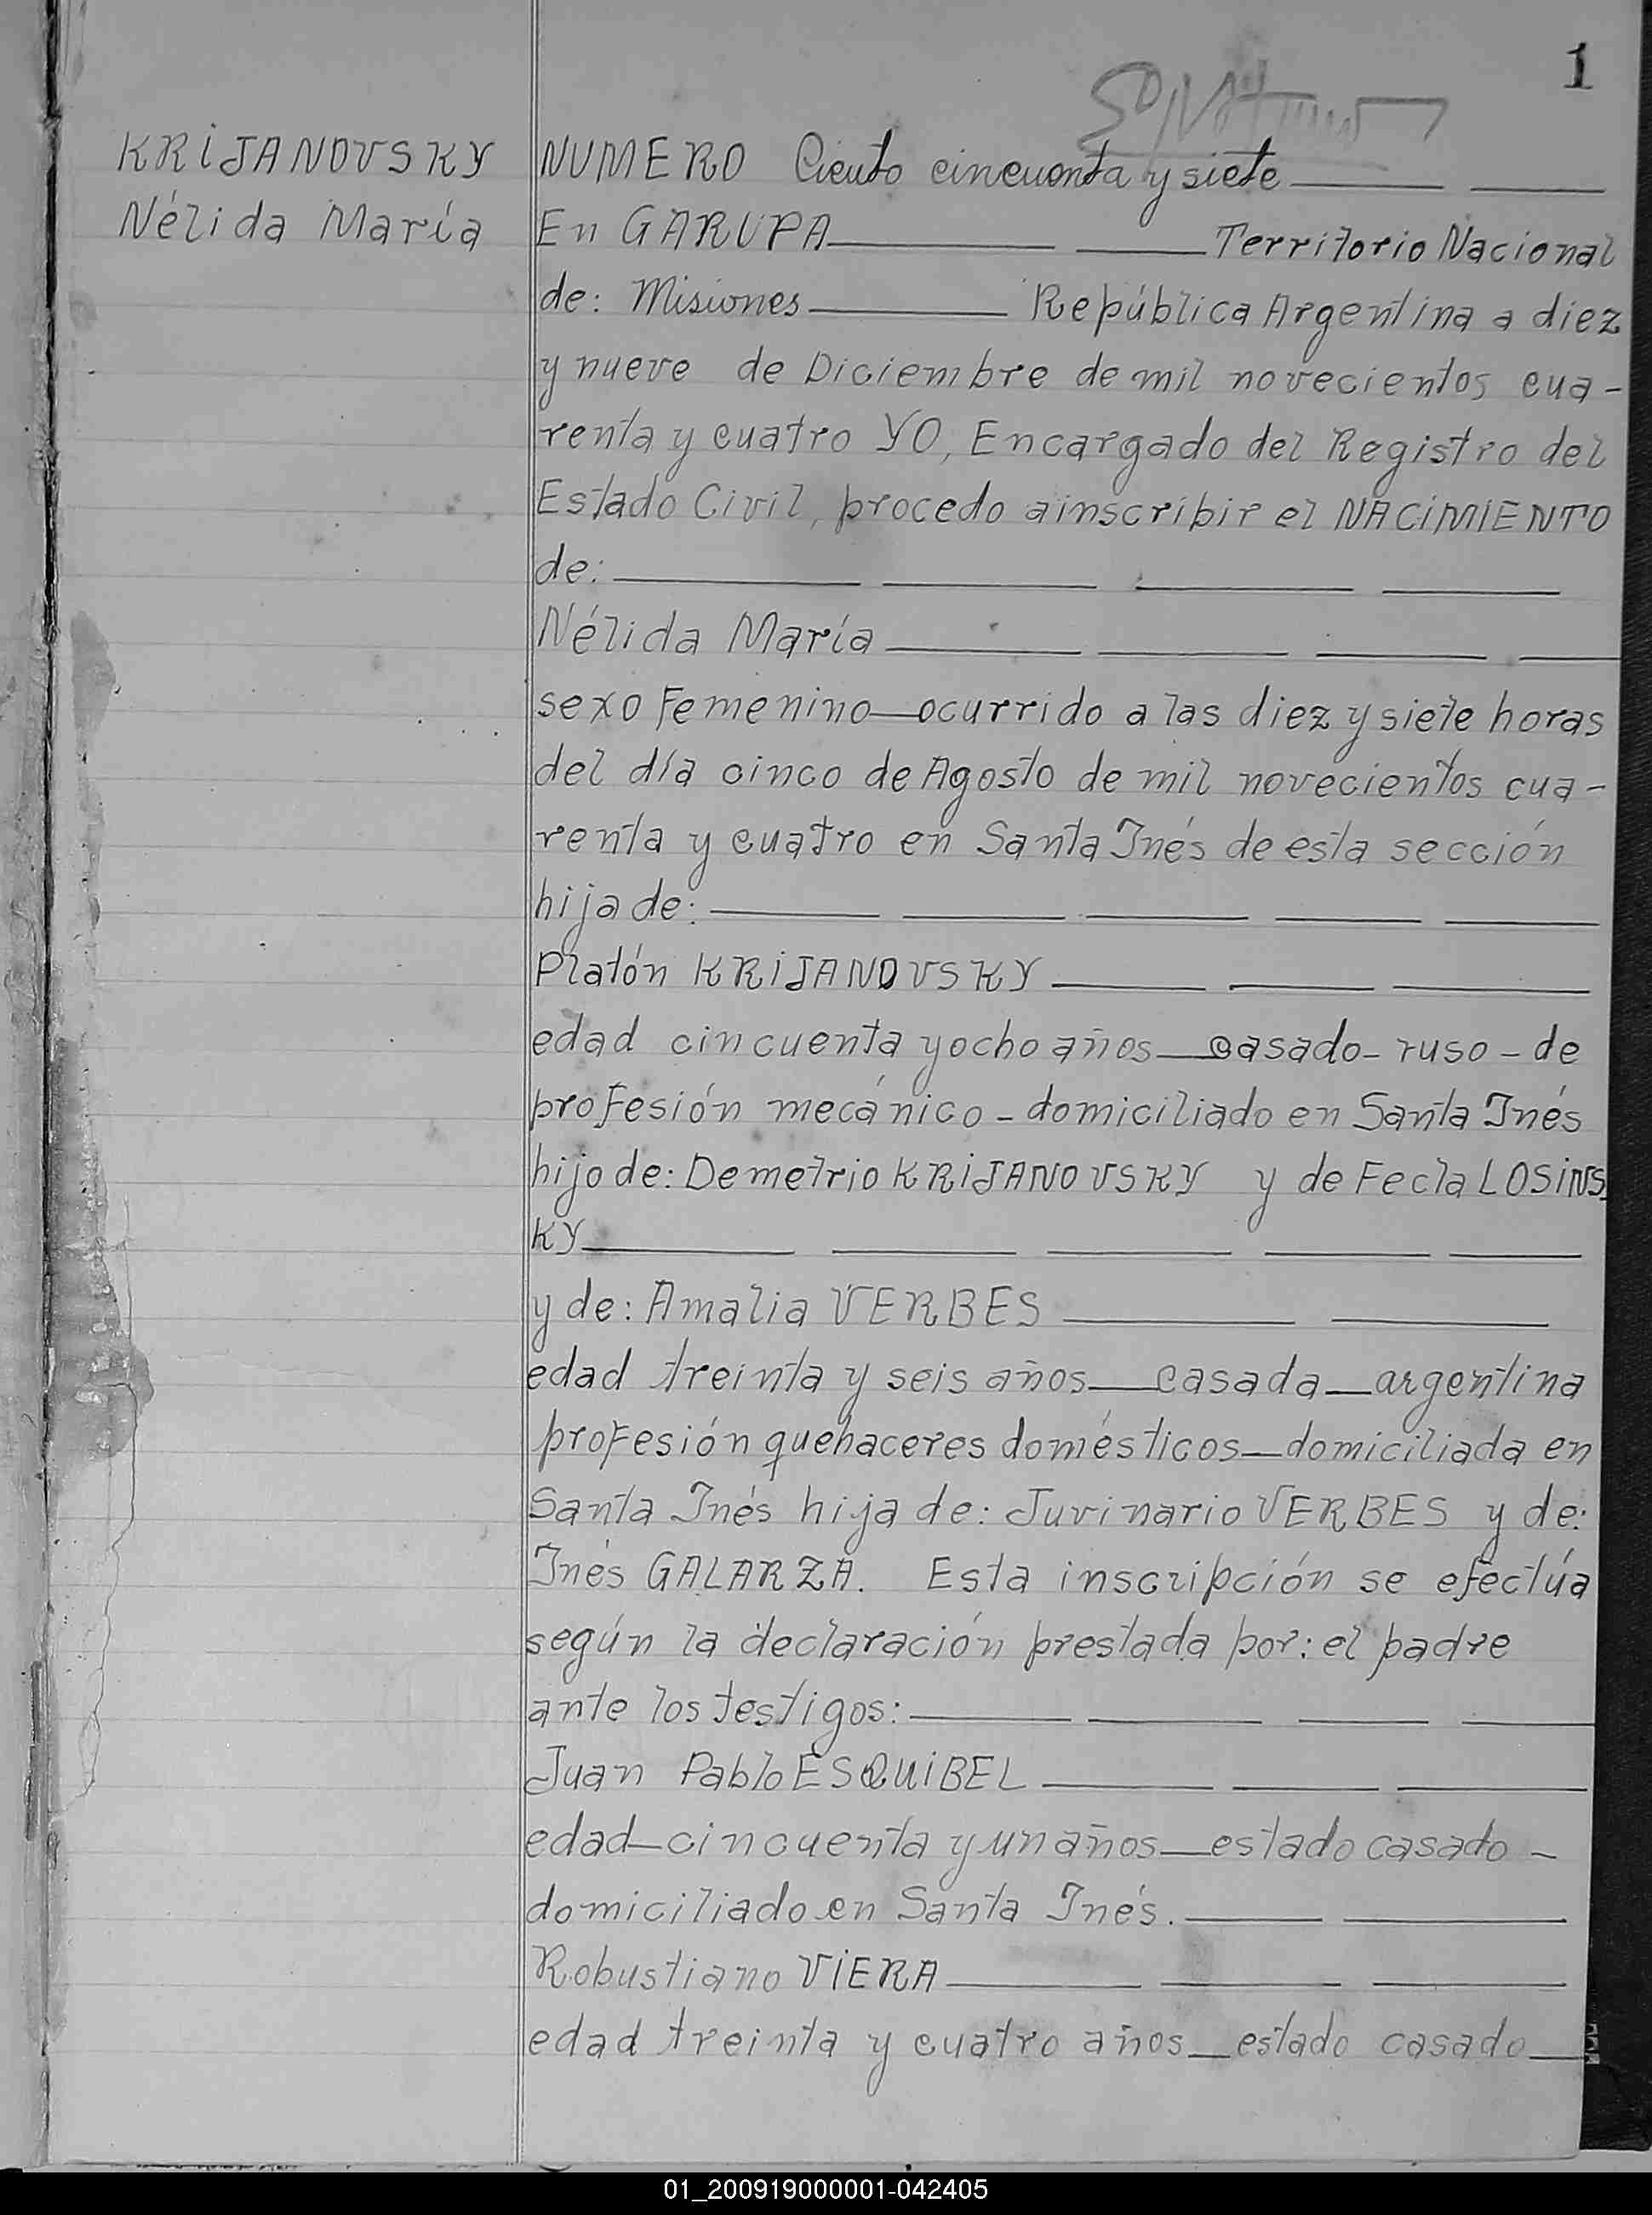 1
KRiJANOVSKY
Nélida María
NUMERO Ciento cincuenta y siete
En GARUPA Territorio Nacional
de: Misiones República Argentina a diez
y nueve de Diciembre de mil novecientos cua-
renta y cuatro YO, Encargado del Registro del
Estado Civil, procedo a inscribir el NACiMIENTO
de:
Nélida María
sexo Femenino—ocurrido a las diez y siete horas
del día cinco de Agosto de mil novecientos cua-
renta y cuatro en Santa Inés de esta sección
hija de:
Platón KRiJANOVSKY
edad cincuenta y ocho años—casado-ruso-de
profesión mecánico-domiciliado en Santa Inés
hijo de: Demetrio KRiJANOVSKY y de Fecla LOSiNS
KY
y de: Amalia VERBES
edad treinta y seis años—casada—argentina
profesión quehaceres domésticos—domiciliada en
Santa Inés hija de: Juvinario VERBES y de:
Inés GALARZA. Esta inscripción se efectúa
según la declaración prestada por: el padre
ante los testigos:
Juan Pablo ESQUiBEL
edad—cincuenta y un años—estado casado-
domiciliado en Santa Inés.
Robustiano ViERA
edad treinta y cuatro años—estado casado—
01_200919000001-042405